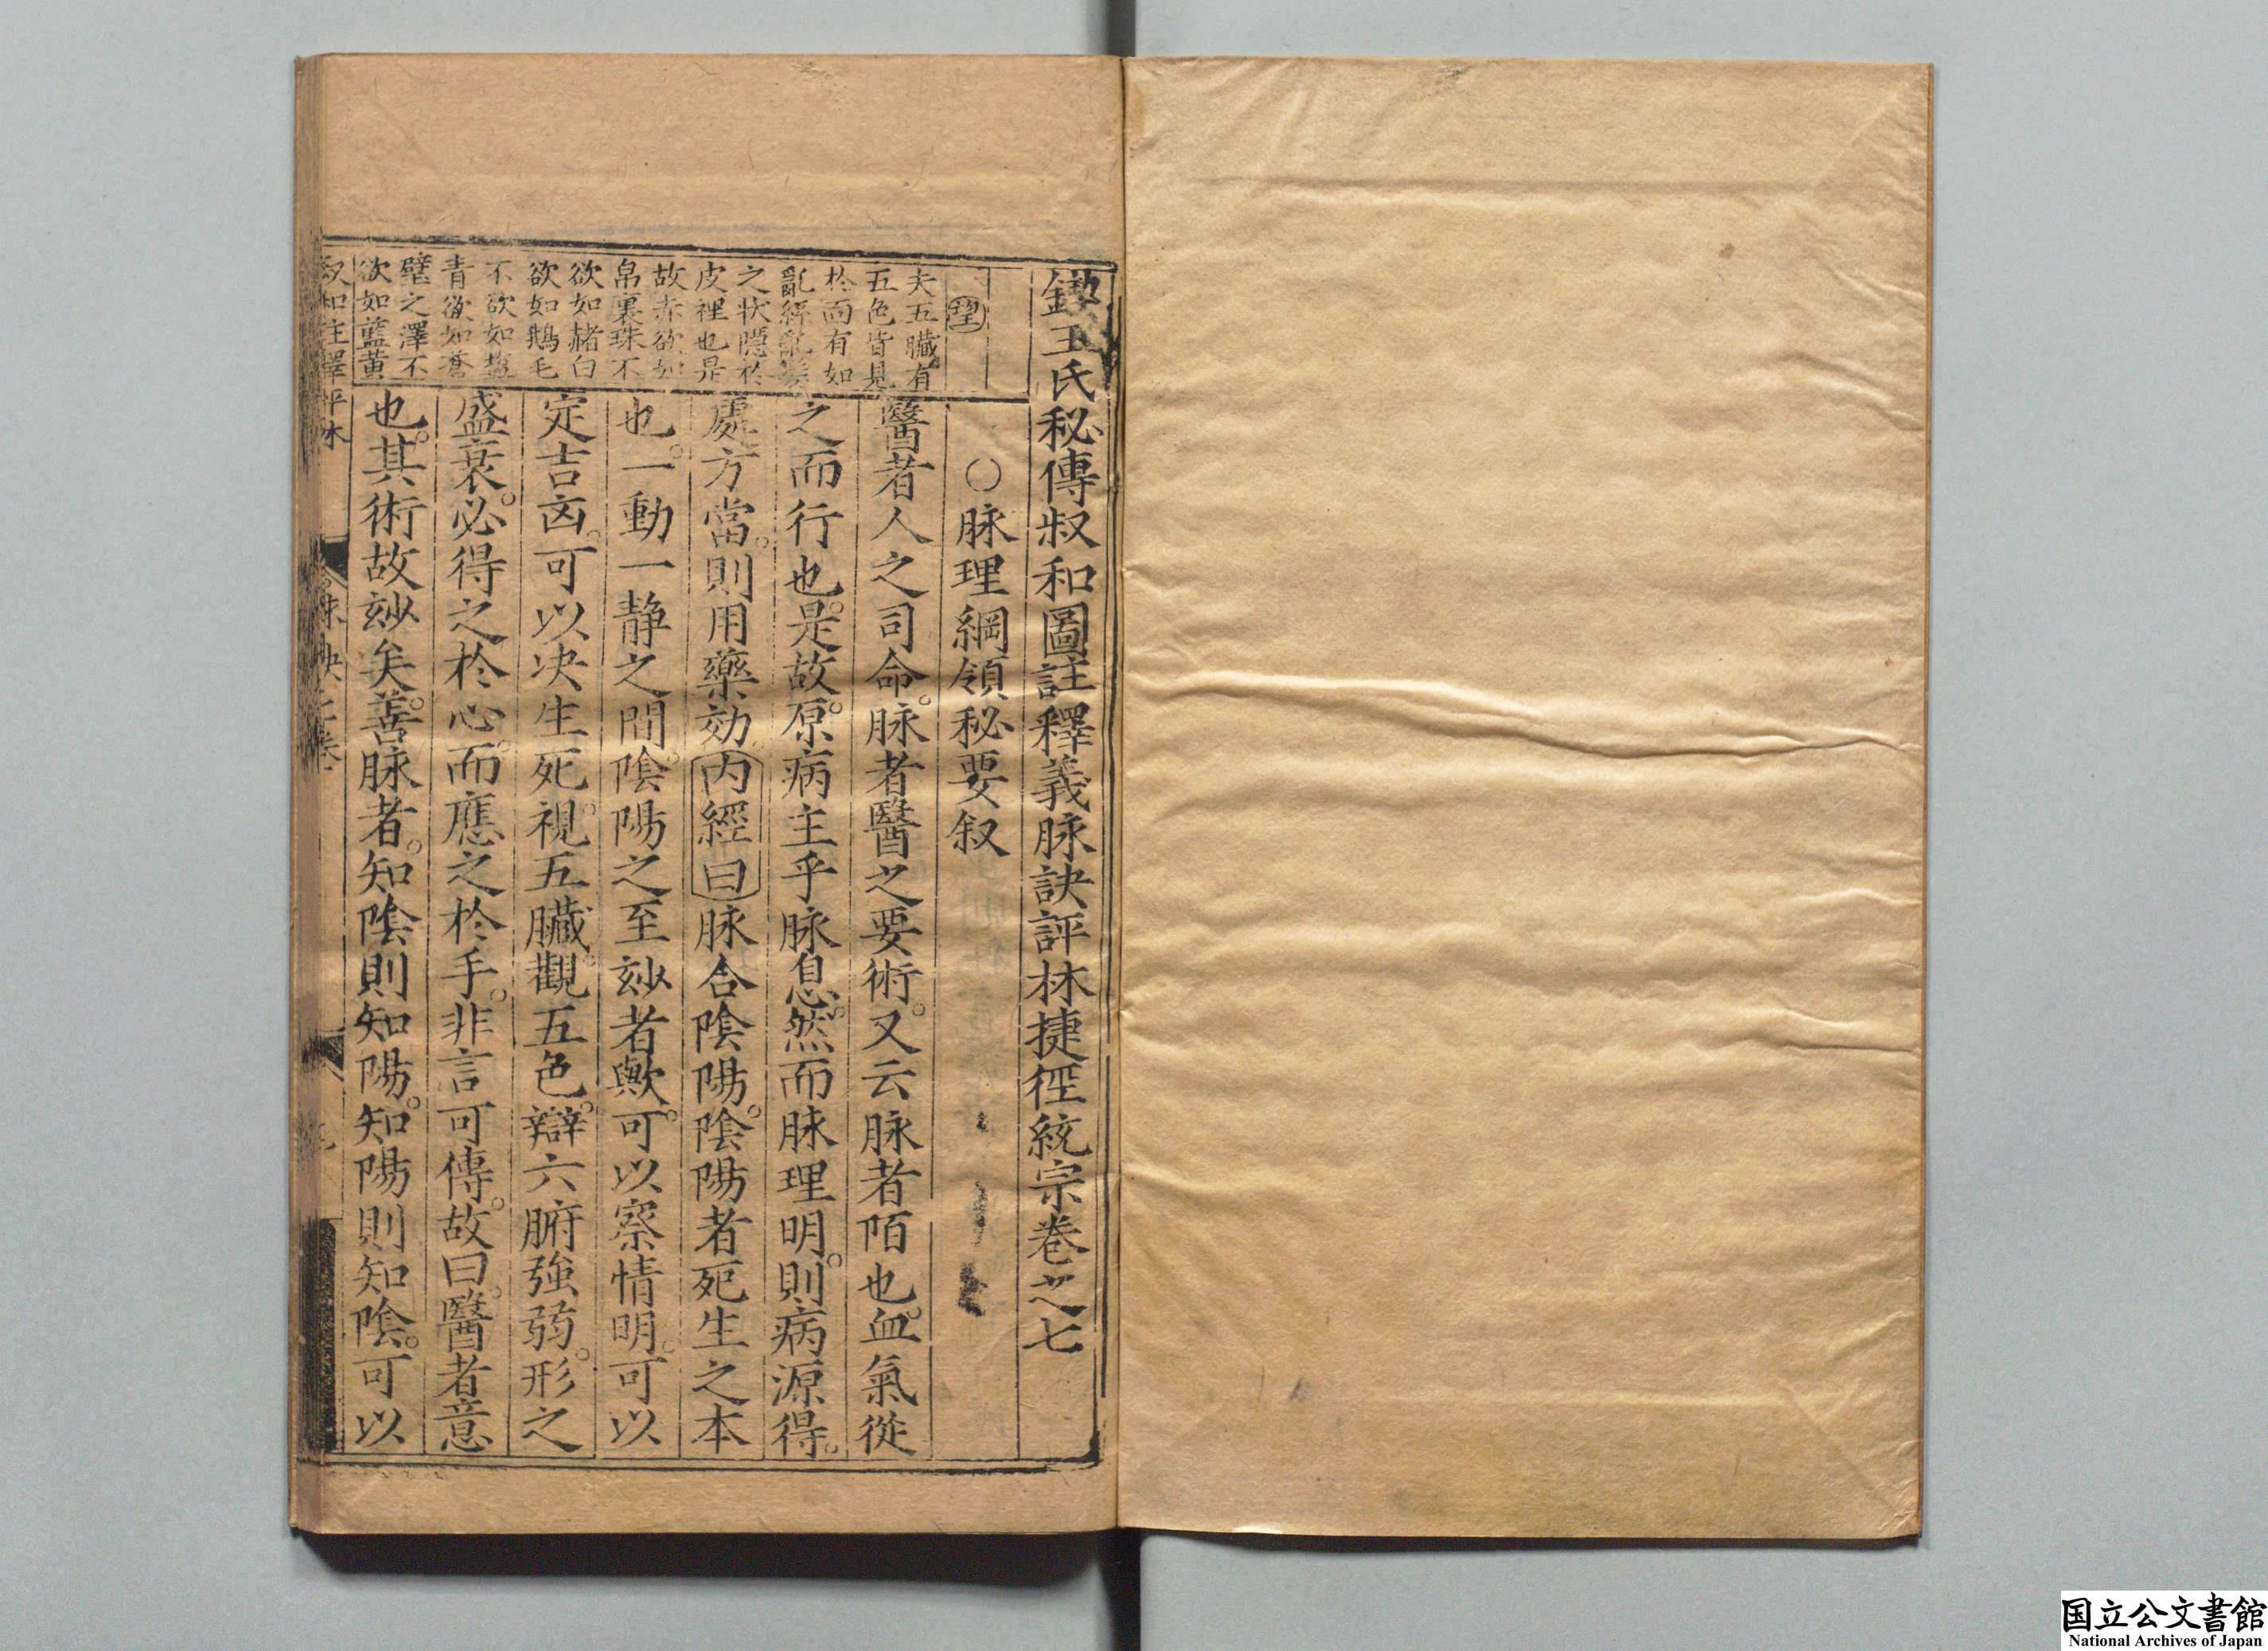 鐫王氏秘傳叔和圖註釋義脉訣評林捷徑統宗卷之七
望
夫五臟有
五色皆見
扵面有如
亂經亂絲
之狀隱於
皮裡也是
故赤欲如
帛裹珠不
欲如赭白
欲如鵝毛
不欲如鹽
青欲如蒼
璧之澤不
欲如藍黃
○脉理綱領秘要叙
醫者人之司命。脉者醫之要術。又云脉者陌也。血氣從
之而行也。是故。原病主乎脉息。然而脉理明。則病源得。
處方當。則用藥効。内經曰脉合陰陽。陰陽者死生之本
也。一動一靜之間。陰陽之至玅者歟。可以察情明。可以
定吉凶。可以决生死。視五臟。觀五色。辯六腑強弱。形之
盛衰。必得之扵心。而應之扵手。非言可傳。故曰。醫者意
也。其術故玅矣。善脉者。知陰則知陽。知陽則知陰。可以
叔和註釋評林
脉决七卷
国立公文書館
National Archives of Japan